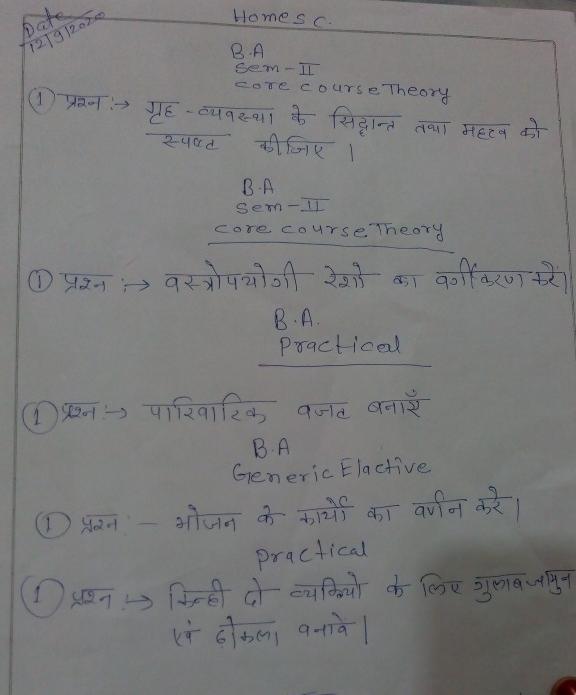 Date
12/9/2020
Homesc.
B.A
Sem-II
core course Theory
① प्रश्न :→ गृह-व्यवस्था के सिद्दान्त तथा महत्व को
स्पष्ट कीजिए।
B.A
Sem-II
core course Theory
① प्रश्न :→ वस्त्रोपयोगी रेशो का वर्गीकरण करें।
B.A.
Practical
① प्रश्न :→ पारिवारिक बजट बनाएँ
B.A
Generic Elactive
① प्रश्न :- भोजन के कार्यो का वर्णन करे।
Practical
① प्रश्न :→ किन्ही दो व्यक्तियो के लिए गुलाबजामुन
एवं ढोकला बनावे।